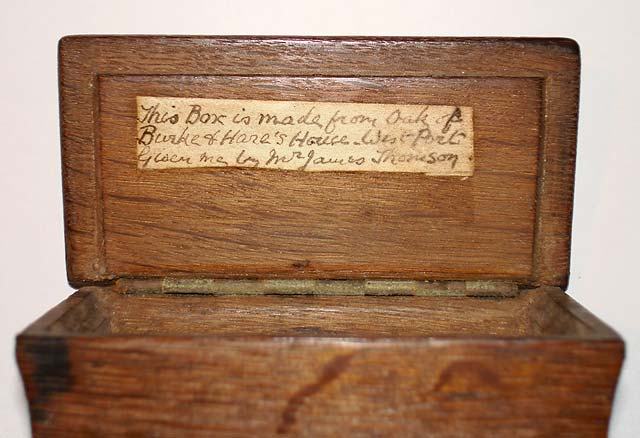 This Box is made from Oak of
Burke & Hare's House West Port
Given me by Mr James Thomson